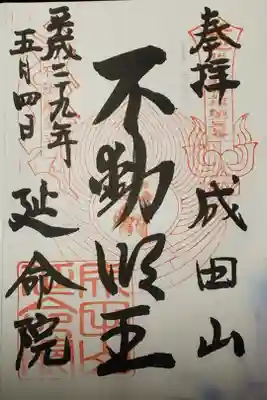 奉拝
成田山
不動明王
平成二十九年
五月四日
延命院